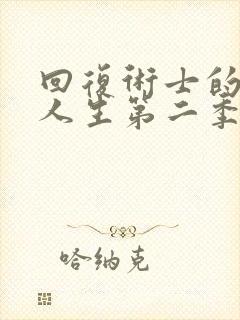 回復術士的
人生第二季
哈纳克